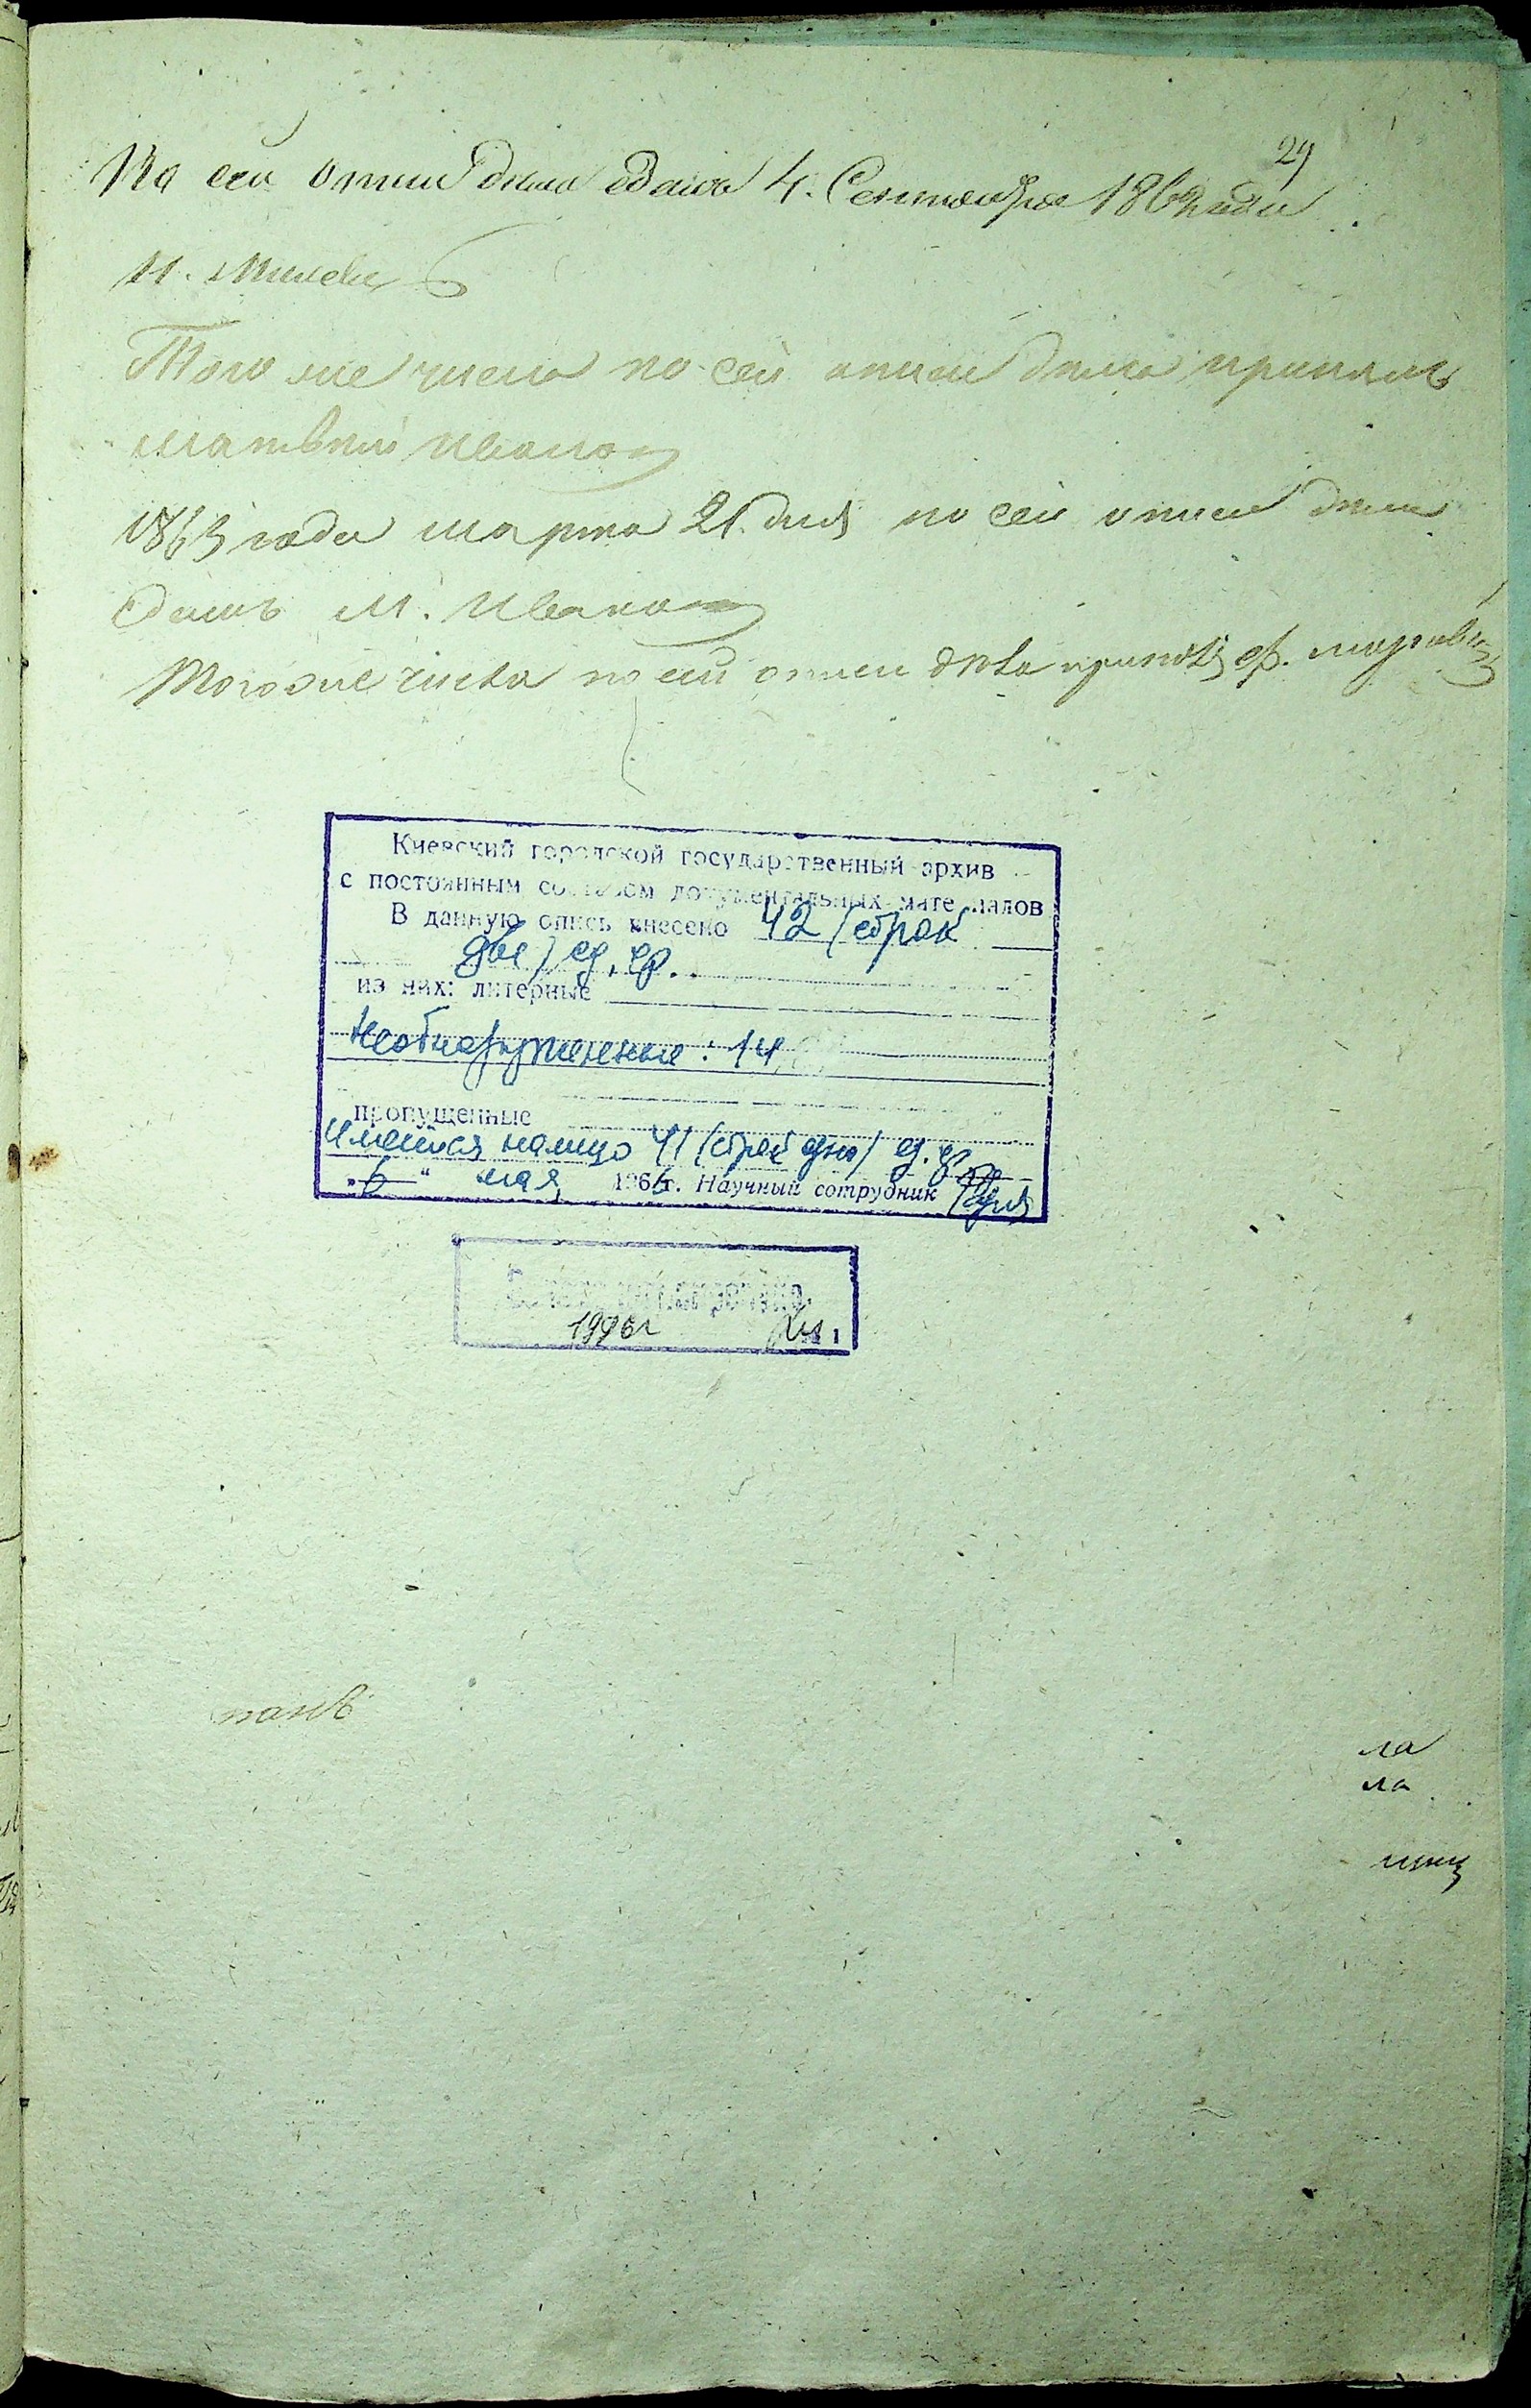 29
По сей описи дѣла сдалъ 4. Сентября 186 года
Того же числа по сей описи дѣла принялъ
Матвѣй Иванов
1863 года марта 21 дня по сей описи дѣла
сдалъ М. Иванов
Того же числа по сей описи дѣла принялъ
Киевский городской государственный архив
с постоянным составом документальных материалов
В данную опись внесено 42 (сорок
две) ед. хр.
из них: литерные
Необнаруженные: 14
пропущенные
Имеется налицо 41 (сорок одна) ед. хр.
"6" мая 1966г. Научный сотрудник
1996г
ла
ла